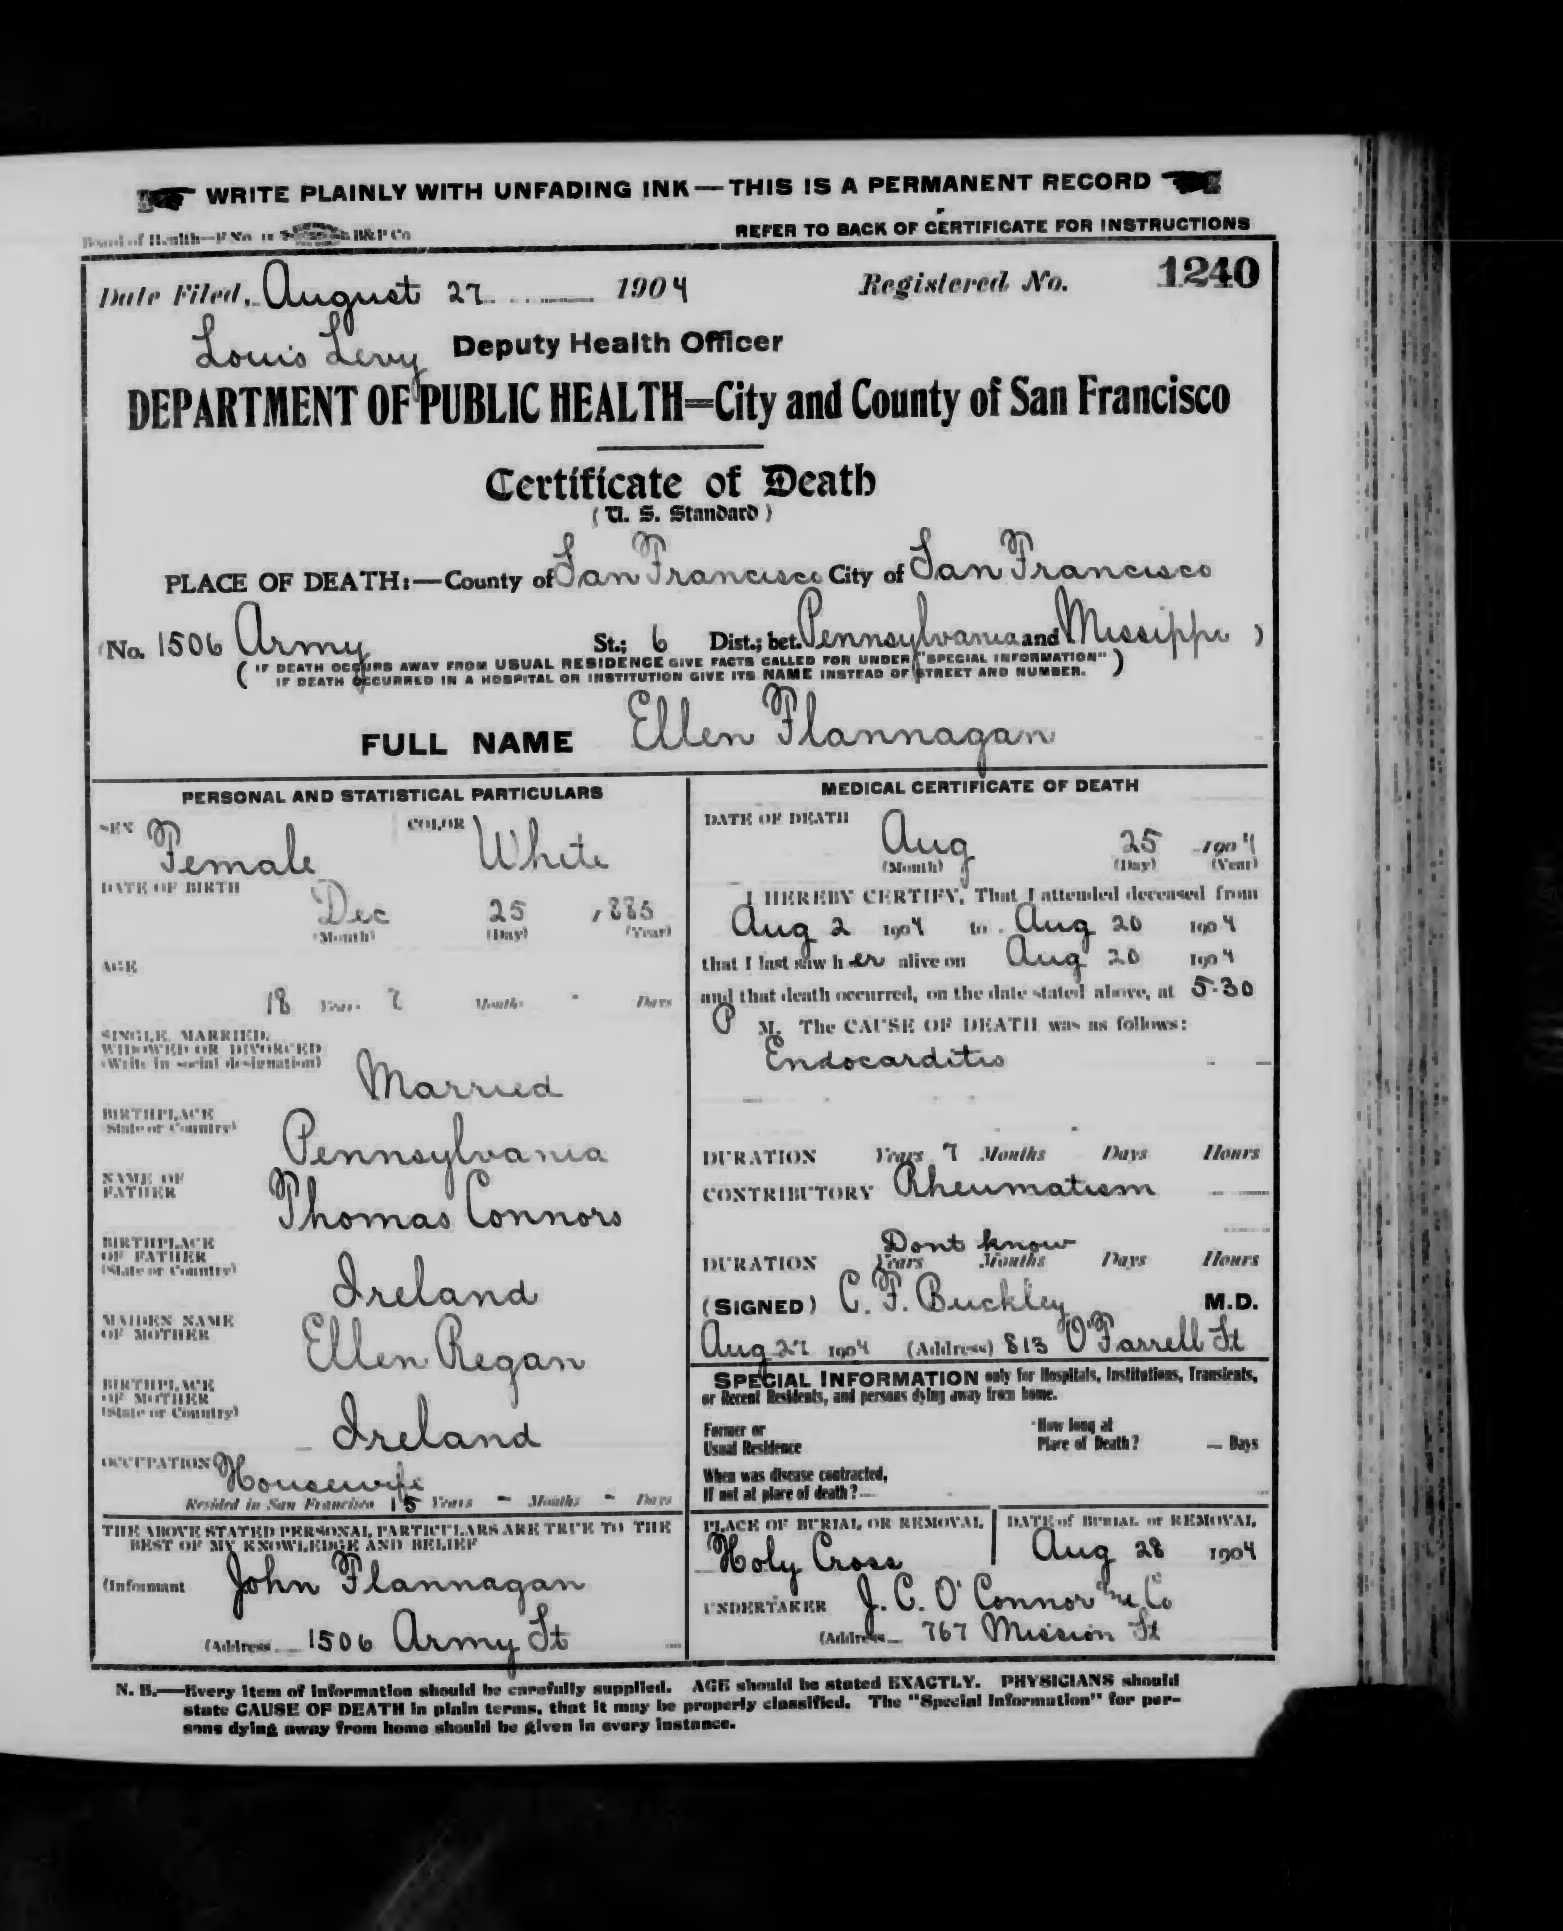 WRITE PLAINLY WITH UNFADING INK—THIS IS A PERMANENT RECORD
Board of Health—F No. B&P Co
REFER TO BACK OF CERTIFICATE FOR INSTRUCTIONS
Date Filed, August 27 1904 Registered No. 1240
Louis Levy Deputy Health Officer
DEPARTMENT OF PUBLIC HEALTH=City and County of San Francisco
Certificate of Death
(U. S. Standard)
PLACE OF DEATH:—County of San Francisco City of San Francisco
(No. 1506 Army St.; 6 Dist.; bet. Pennsylvania and Missippi )
( IF DEATH OCCURS AWAY FROM USUAL RESIDENCE GIVE FACTS CALLED FOR UNDER "SPECIAL INFORMATION" )
IF DEATH OCCURRED IN A HOSPITAL OR INSTITUTION GIVE ITS NAME INSTEAD OF STREET AND NUMBER.
FULL NAME Ellen Flannagan
PERSONAL AND STATISTICAL PARTICULARS
SEX Female COLOR White
DATE OF BIRTH
Dec 25 1885
(Month) (Day) (Year)
AGE
18 Years 7 Months - Days
SINGLE, MARRIED,
WIDOWED OR DIVORCED
(Write in social designation)
Married
BIRTHPLACE
(State or Country)
Pennsylvania
NAME OF
FATHER
Thomas Connors
BIRTHPLACE
OF FATHER
(State or Country)
Ireland
MAIDEN NAME
OF MOTHER
Ellen Regan
BIRTHPLACE
OF MOTHER
(State or Country)
Ireland
OCCUPATION Housewife
Resided in San Francisco 15 Years - Months - Days
THE ABOVE STATED PERSONAL PARTICULARS ARE TRUE TO THE
BEST OF MY KNOWLEDGE AND BELIEF
(Informant John Flannagan
(Address 1506 Army St
MEDICAL CERTIFICATE OF DEATH
DATE OF DEATH
Aug 25 1904
(Month) (Day) (Year)
I HEREBY CERTIFY, That I attended deceased from
Aug 2 1904 to Aug 20 1904
that I last saw her alive on Aug 20 1904
and that death occurred, on the date stated above, at 5-30
P M. The CAUSE OF DEATH was as follows:
Endocarditis
DURATION Years 7 Months Days Hours
CONTRIBUTORY Rheumatism
Dont know
DURATION Years Months Days Hours
(SIGNED) C. F. Buckley M.D.
Aug 27 1904 (Address) 813 O'Farrell St
SPECIAL INFORMATION only for Hospitals, Institutions, Transients,
or Recent Residents, and persons dying away from home.
Former or
Usual Residence
How long at
Place of Death? — Days
When was disease contracted,
If not at place of death?
PLACE OF BURIAL OR REMOVAL
Holy Cross
DATE of BURIAL or REMOVAL
Aug 28 1904
UNDERTAKER J. C. O'Connor Co
(Address 767 Mission St
N. B.—Every item of information should be carefully supplied. AGE should be stated EXACTLY. PHYSICIANS should
state CAUSE OF DEATH in plain terms, that it may be properly classified. The "Special Information" for per-
sons dying away from home should be given in every instance.